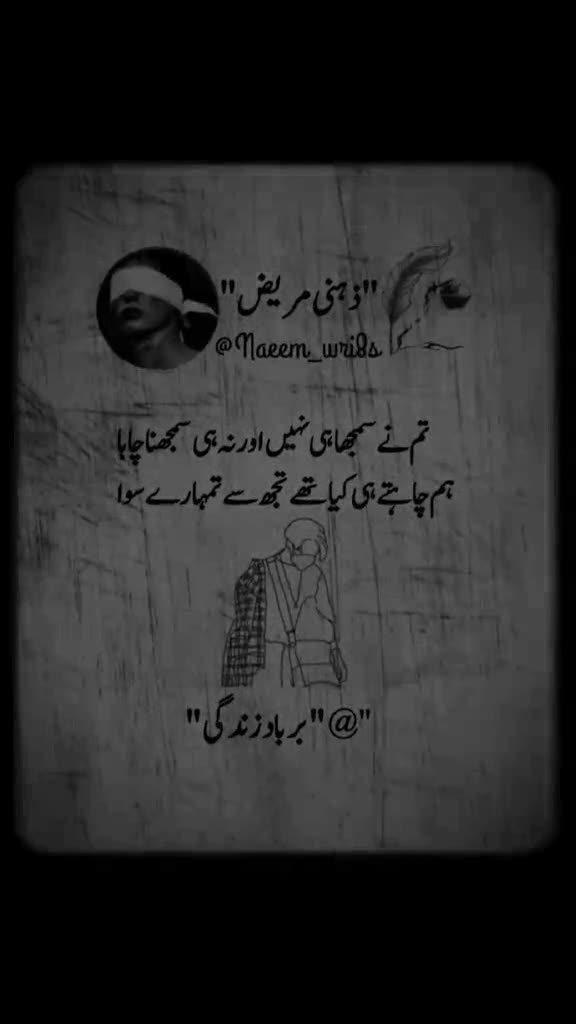 "ذہنی مریض"
@Naeem_wri8s
تم نے سمجھا ہی نہیں اور نہ ہی سمجھنا چاہا
ہم چاہتے ہی کیا تھے تجھ سے تمہارے سوا
"@"برباد زندگی"